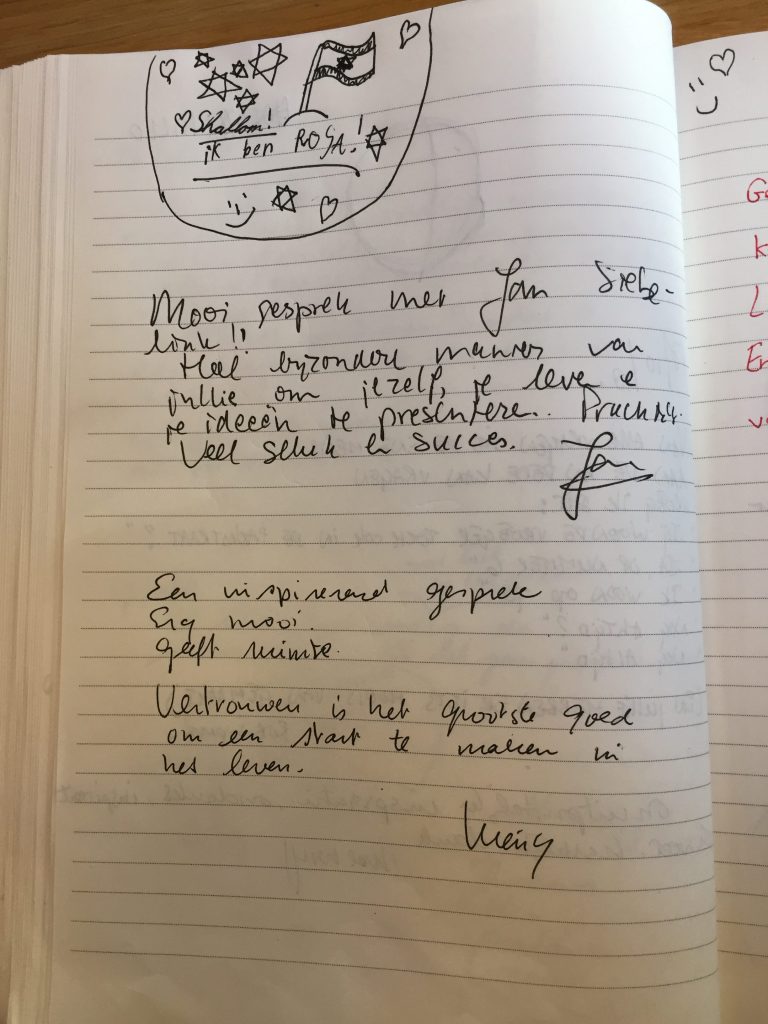 Shallom!
ik ben ROSA!
Mooi gesprek met Jan Siebe-
link!!
Heel bijzondere manier van
jullie om jezelf, je leven e
je ideeën te presentere. Prachtig.
Veel geluk en succes.
Jan
Een inspirerend gesprek
Erg mooi.
geeft ruimte.
Vertrouwen is het grootste goed
om een start te maken in
het leven.